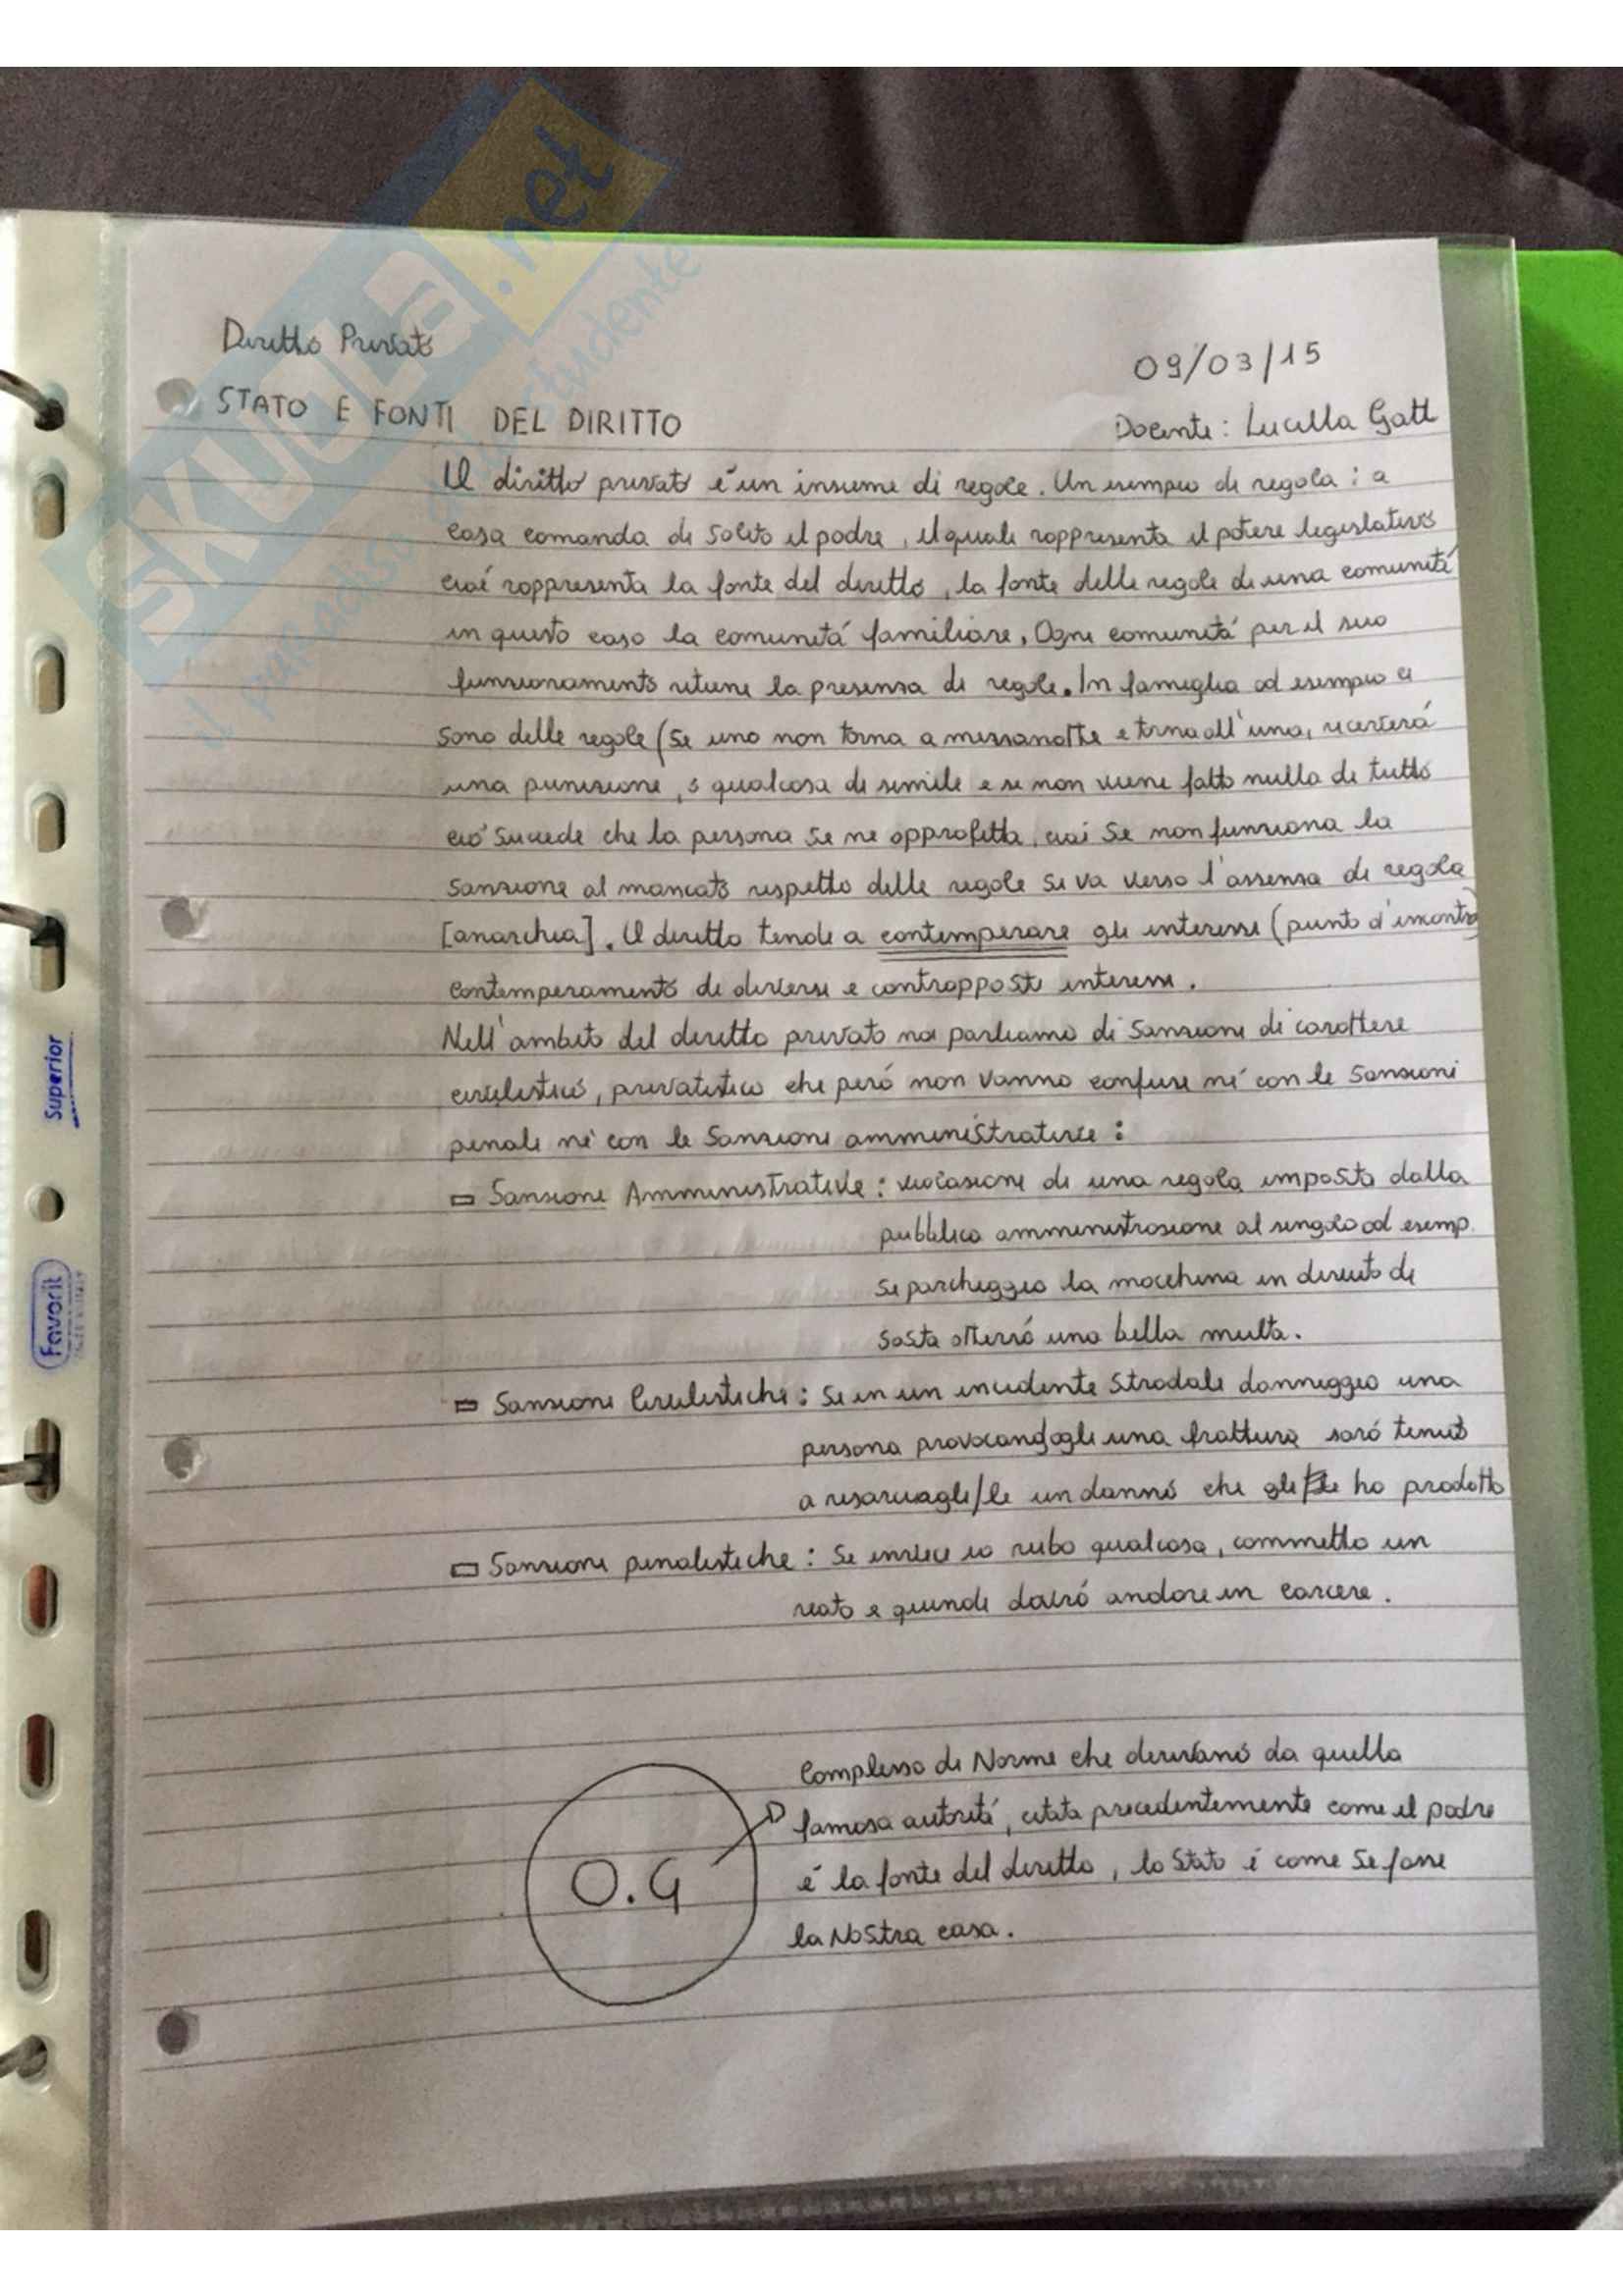 SKUOLA.net
il paradiso dello studente
Diritto Privato
09/03/15
STATO E FONTI DEL DIRITTO
Docente: Lucilla Gatt
Il diritto privato é un insieme di regole. Un esempio di regola: a
casa comanda di solito il padre, il quale rappresenta il potere legislativo
cioé rappresenta la fonte del diritto, la fonte delle regole di una comunitá
in questo caso la comunitá familiare. Ogni comunitá per il suo
funzionamento ritiene la presenza di regole. In famiglia ad esempio ci
sono delle regole (se uno non torna a mezzanotte e torna all'una, riceverá
una punizione, o qualcosa di simile e se non viene fatto nulla di tutto
ció succede che la persona se ne approfitta, cioé se non funziona la
sanzione al mancato rispetto delle regole si va verso l'assenza di regola
[anarchia]. Il diritto tende a contemperare gli interessi (punto d'incontro)
contemperamento di diversi e contrapposti interessi.
Nell'ambito del diritto privato noi parliamo di sanzioni di carattere
civilistico, privatistico che peró non vanno confuse né con le sanzioni
penali né con le sanzioni amministrative:
Sanzione Amministrative: violazione di una regola imposta dalla
pubblica amministrazione al singolo ad esemp.
se parcheggio la macchina in divieto di
sosta otterró una bella multa.
Sanzioni Civilistiche: Se in un incidente stradale danneggio una
persona provocandogli una frattura saró tenuto
a risarcirgli/le un danno che gli/le ho prodotto
Sanzioni penalistiche: Se invece io rubo qualcosa, commetto un
reato e quindi dovró andare in carcere.
Complesso di Norme che derivano da quella
famosa autoritá, citata precedentemente come il padre
é la fonte del diritto, lo Stato é come se fosse
la Nostra casa.
O.G
Superior
Favorit